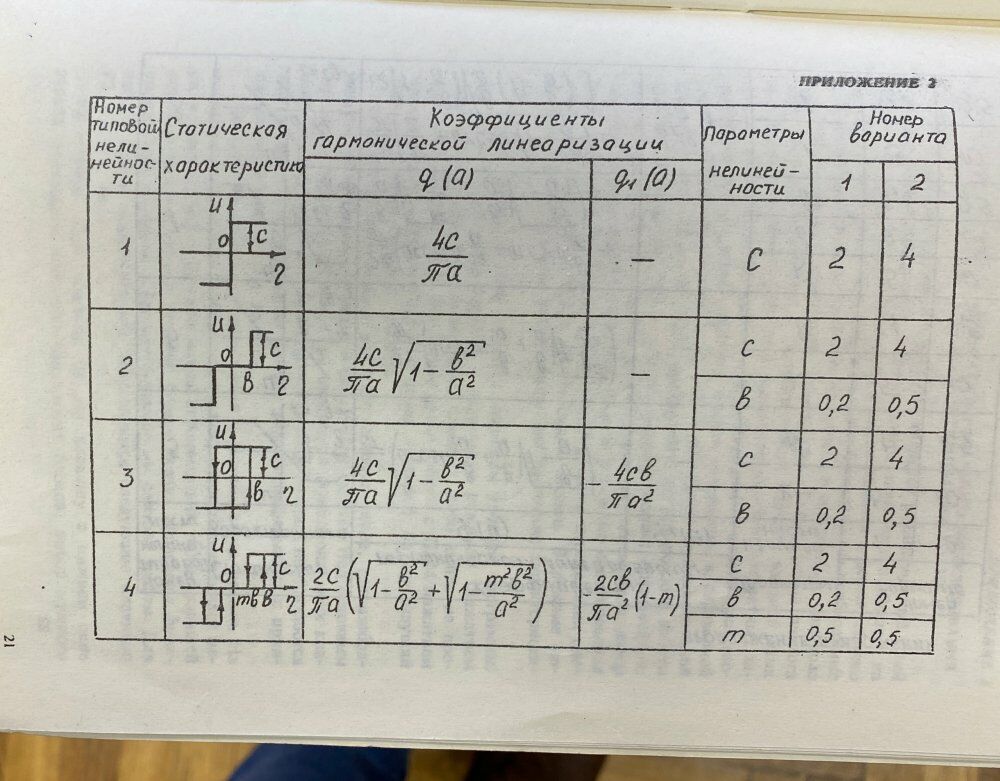 ПРИЛОЖЕНИЕ 3
Номер типовой нели- нейнос- ти
Статическая характеристика
Коэффициенты гармонической линеаризации
q (a)
q₁ (a)
Параметры нелиней- ности
Номер варианта
1 2
1
u
0
c
η
4c/πa
—
c 2 4
2
u
0
c
в
η
4c/πa √(1 - в²/a²)
—
c 2 4
в 0,2 0,5
3
u
0
c
в
η
4c/πa √(1 - в²/a²)
- 4cв/πa²
c 2 4
в 0,2 0,5
4
u
0
c
mв в
η
2c/πa (√(1 - в²/a²) + √(1 - m²в²/a²))
- 2cв/πa² (1-m)
c 2 4
в 0,2 0,5
m 0,5 0,5
21